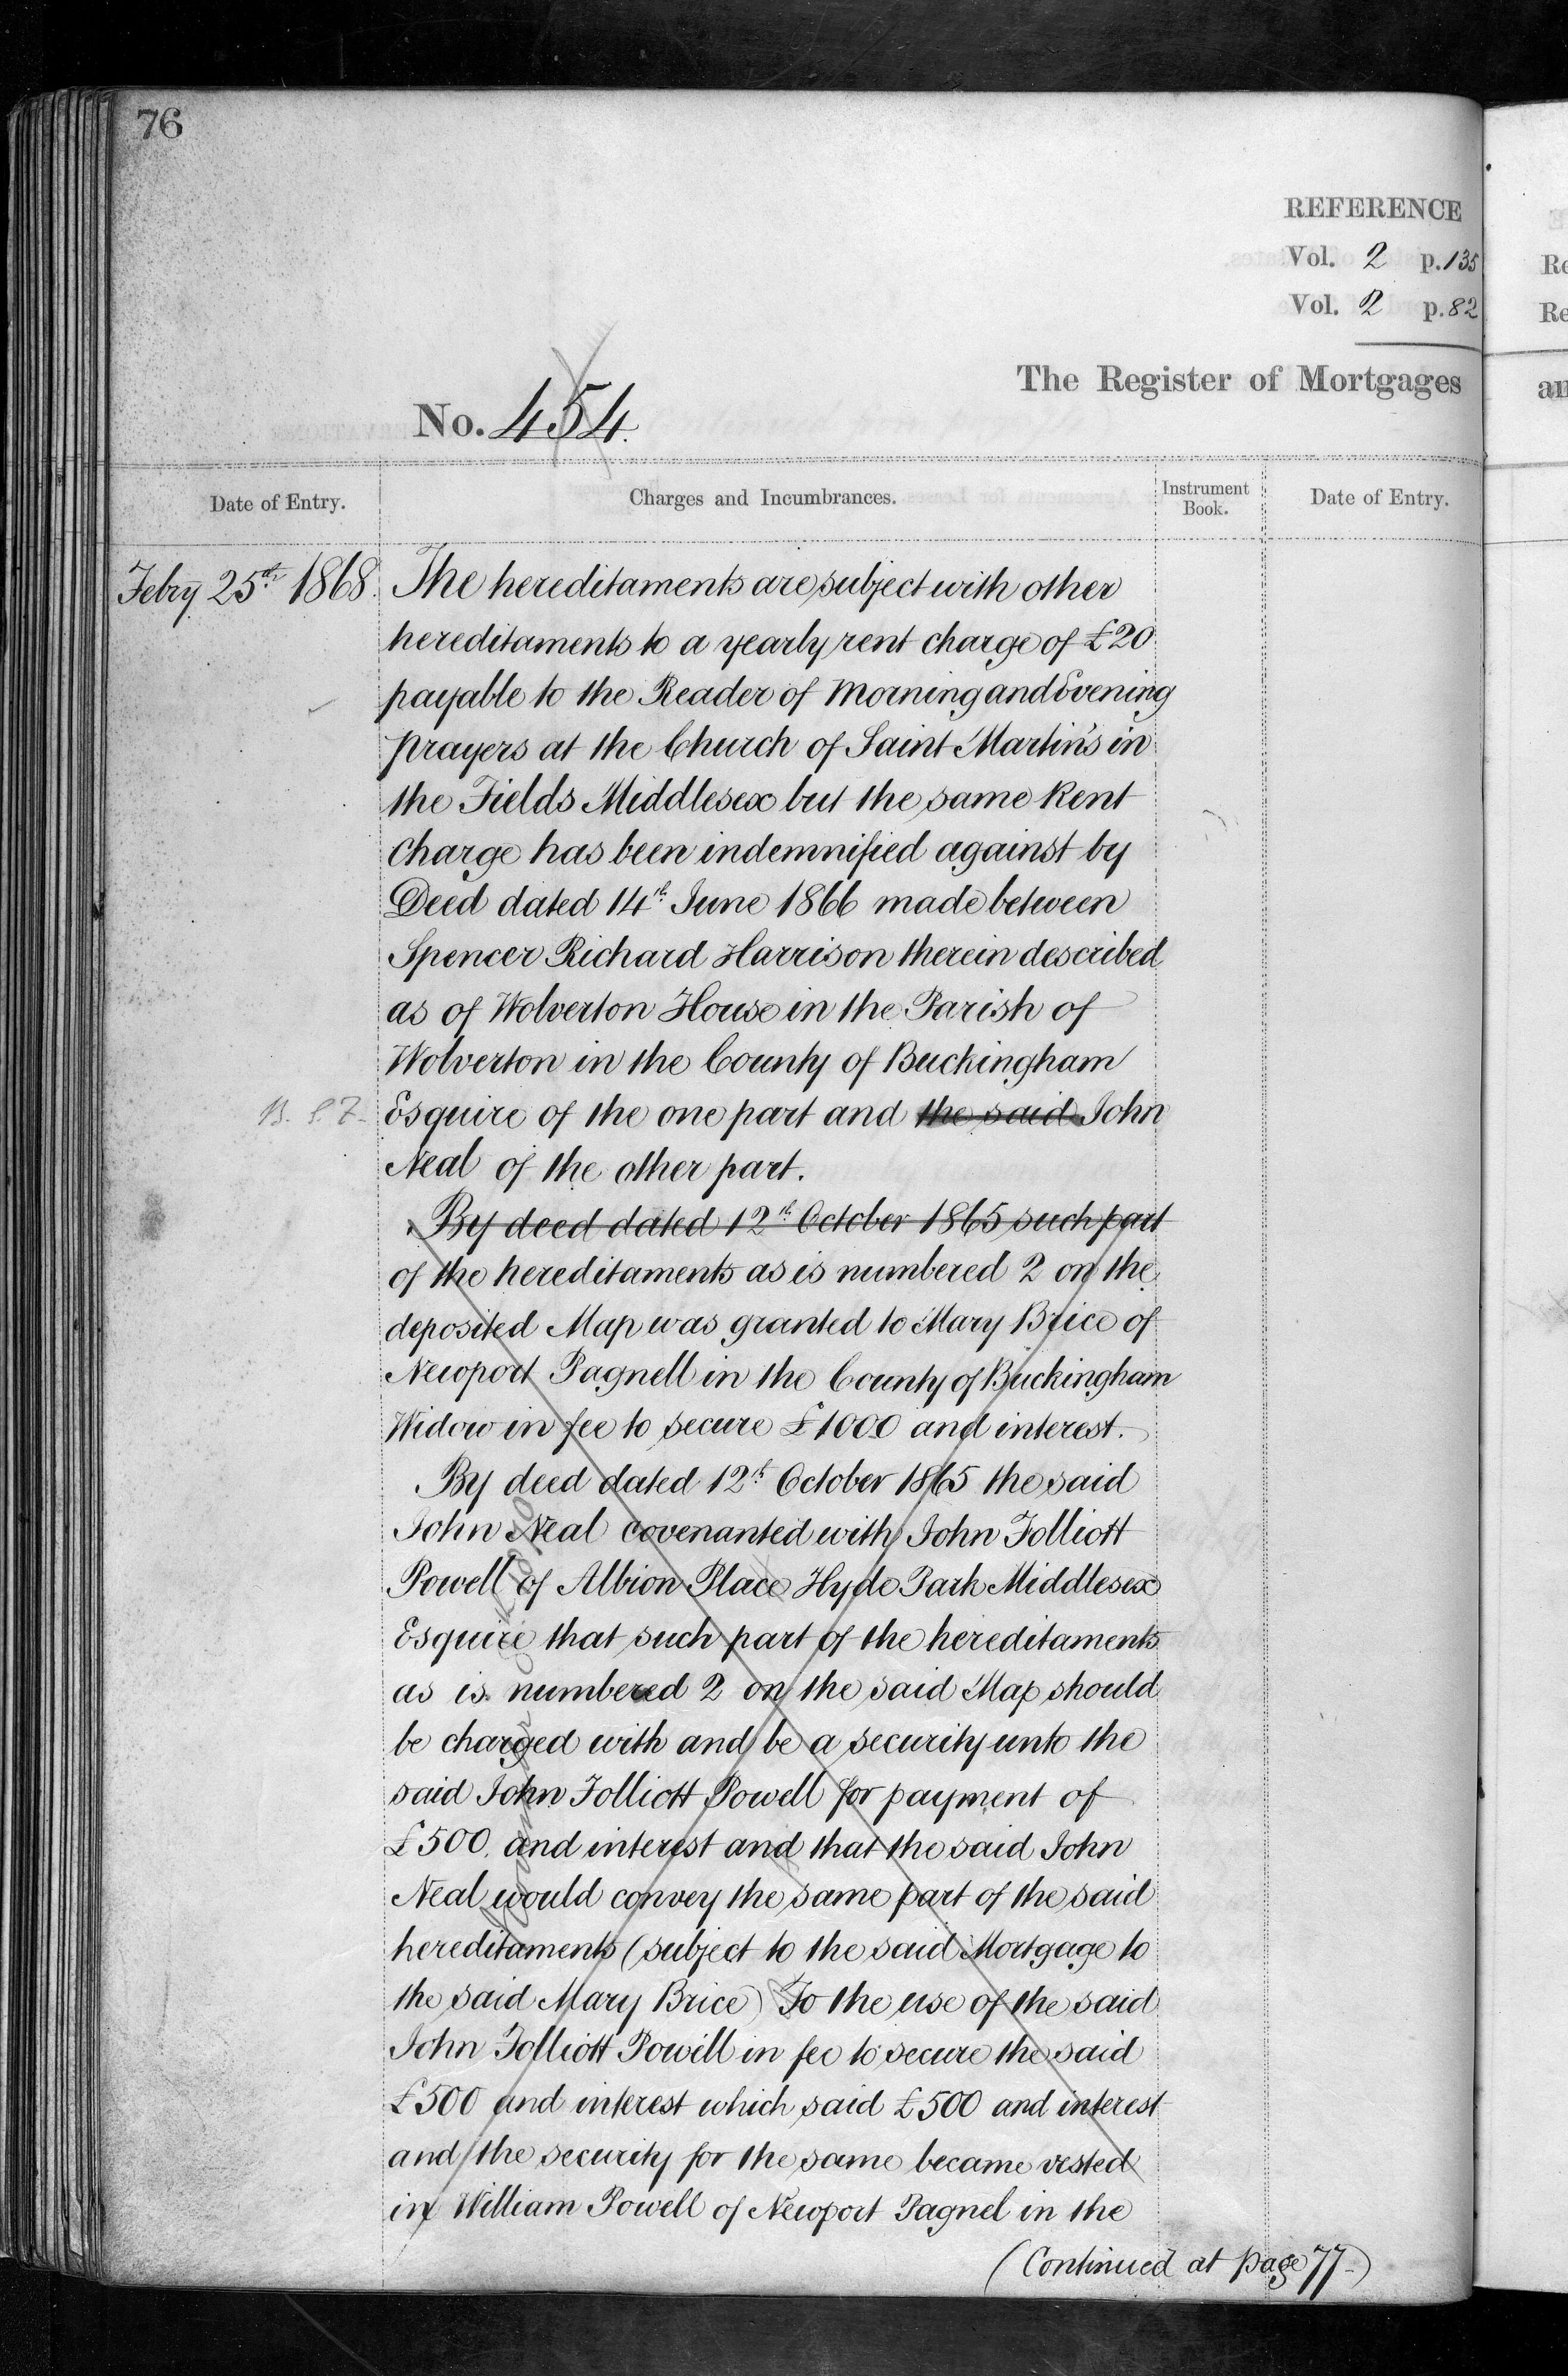 76
REFERENCE
Vol. 2 p. 135
Vol. 2 p. 82
The Register of Mortgages
No. 454.
Date of Entry.
Charges and Incumbrances.
Instrument Book.
Date of Entry.
Febry 25th 1868.
The hereditaments are subject with other
hereditaments to a yearly rent charge of £20
payable to the Reader of Morning and Evening
prayers at the Church of Saint Martin's in
the Fields Middlesex but the same Rent
charge has been indemnified against by
Deed dated 14th June 1866 made between
Spencer Richard Harrison therein described
as of Wolverton House in the Parish of
Wolverton in the County of Buckingham
Esquire of the one part and the said John
Neal of the other part.
By deed dated 12th October 1865 such part
of the hereditaments as is numbered 2 on the
deposited Map was granted to Mary Brice of
Newport Pagnell in the County of Buckingham
Widow in fee to secure £1000 and interest.
By deed dated 12th October 1865 the said
John Neal covenanted with John Folliott
Powell of Albion Place Hyde Park Middlesex
Esquire that such part of the hereditaments
as is numbered 2 on the said Map should
be charged with and be a security unto the
said John Folliott Powell for payment of
£500 and interest and that the said John
Neal would convey the same part of the said
hereditaments (subject to the said Mortgage to
the said Mary Brice) To the use of the said
John Folliott Powell in fee to secure the said
£500 and interest which said £500 and interest
and the security for the same became vested
in William Powell of Newport Pagnel in the
(Continued at page 77-)
Re
Re
an